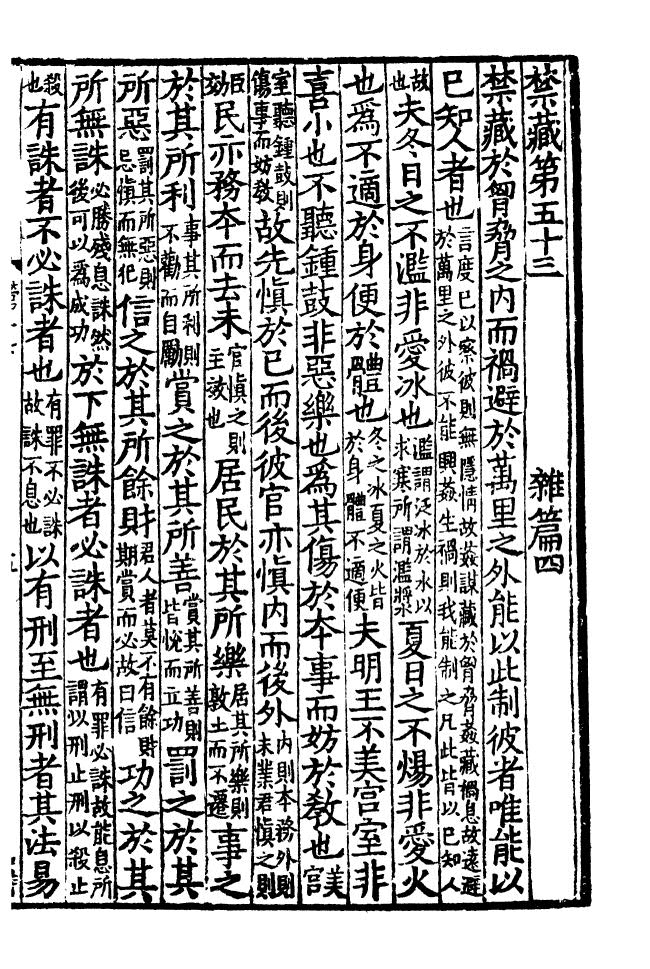 禁藏第五十三　雜篇四
禁藏於胷脅之內而禍避於萬里之外能以此制彼者唯能以
已知人者也言度已以察彼則無隱情故姦謀藏於胷脅姦藏禍息故遠避於萬里之外彼不能興姦生禍則我能制之凡此皆以已知人
故也夫冬日之不濫非愛冰也濫謂泛冰於水以求寒所謂濫漿夏日之不煬非愛火
也爲不適於身便於體也冬之冰夏之火皆於身體不適便夫明王不美宫室非
喜小也不聽鍾鼓非惡樂也爲其傷於夲事而妨於敎也美宫
室聽鍾鼓則傷事而妨敎故先慎於已而後彼官亦慎内而後外内則夲務外則末業君慎之則
臣效民亦務夲而去末官慎之則主效也居民於其所樂居其所樂則敦土而不遷事之
於其所利事其所利則不勸而自勵賞之於其所善賞其所善則皆悅而立功罰之於其
所惡罰其所惡則忌慎而無犯信之於其所餘財君人者莫不有餘財期賞而必故曰信功之於其
所無誅必勝殘息誅然後可以爲成功於下無誅者必誅者也有罪必誅故能息所謂以刑止刑以殺止
殺也有誅者不必誅者也有罪不必誅故誅不息也以有刑至無刑者其法易